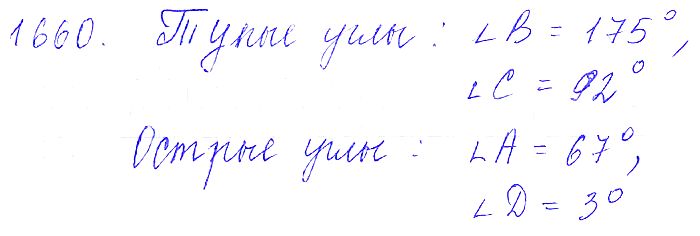 1660. Тупые углы: ∠B = 175°,
∠C = 92°
Острые углы: ∠A = 67°,
∠D = 3°